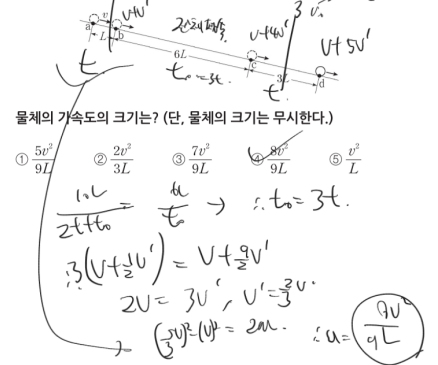 3
v+v'
a v b v+4v' v+5v'
L 6L c 3L d
t t₀=3t. t
물체의 가속도의 크기는? (단, 물체의 크기는 무시한다.)
① 5v²/9L ② 2v²/3L ③ 7v²/9L ④ 8v²/9L ⑤ v²/L
10L/2t+t₀ = 6L/t₀ → ∴ t₀=3t.
∴ 3(v+½v') = v+9/2v'
2v = 3v', v'=2/3v.
(5/3v)²-(v)² = 2aL. ∴ a= 8v²/9L